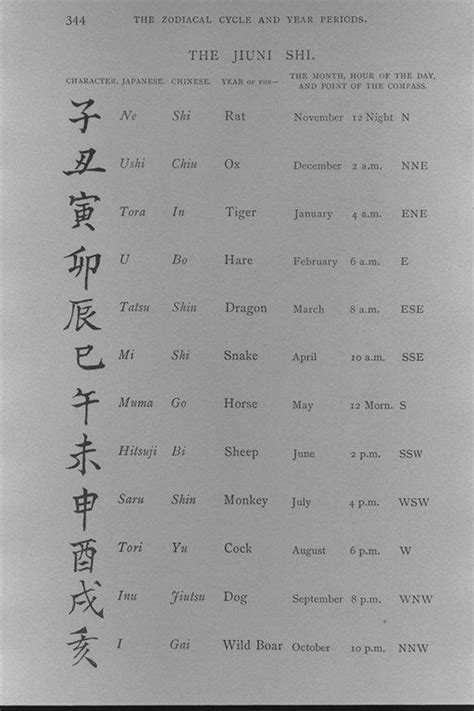 344 THE ZODIACAL CYCLE AND YEAR PERIODS.
THE JIUNI SHI.
CHARACTER. JAPANESE. CHINESE. YEAR OF THE— THE MONTH, HOUR OF THE DAY,
AND POINT OF THE COMPASS.
子 Ne Shi Rat November 12 Night N
丑 Ushi Chiu Ox December 2 a.m. NNE
寅 Tora In Tiger January 4 a.m. ENE
卯 U Bo Hare February 6 a.m. E
辰 Tatsu Shin Dragon March 8 a.m. ESE
巳 Mi Shi Snake April 10 a.m. SSE
午 Muma Go Horse May 12 Morn. S
未 Hitsuji Bi Sheep June 2 p.m. SSW
申 Saru Shin Monkey July 4 p.m. WSW
酉 Tori Yu Cock August 6 p.m. W
戌 Inu Jiutsu Dog September 8 p.m. WNW
亥 I Gai Wild Boar October 10 p.m. NNW